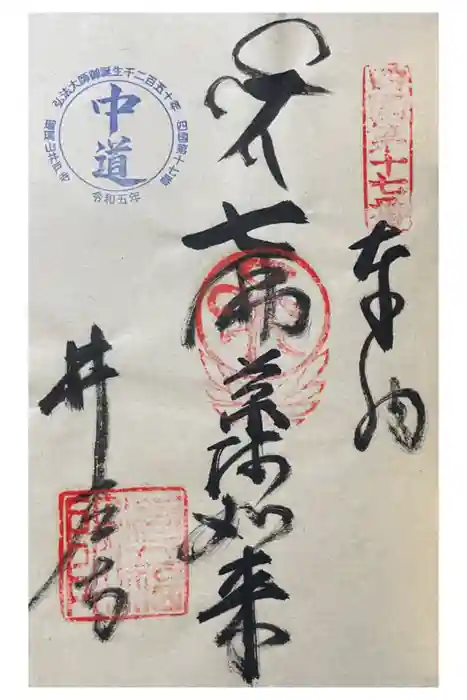 奉納
七佛薬師如来
井戸寺
弘法大師御誕生千二百五十年
四國第十七番
瑠璃山井戸寺
中道
令和五年